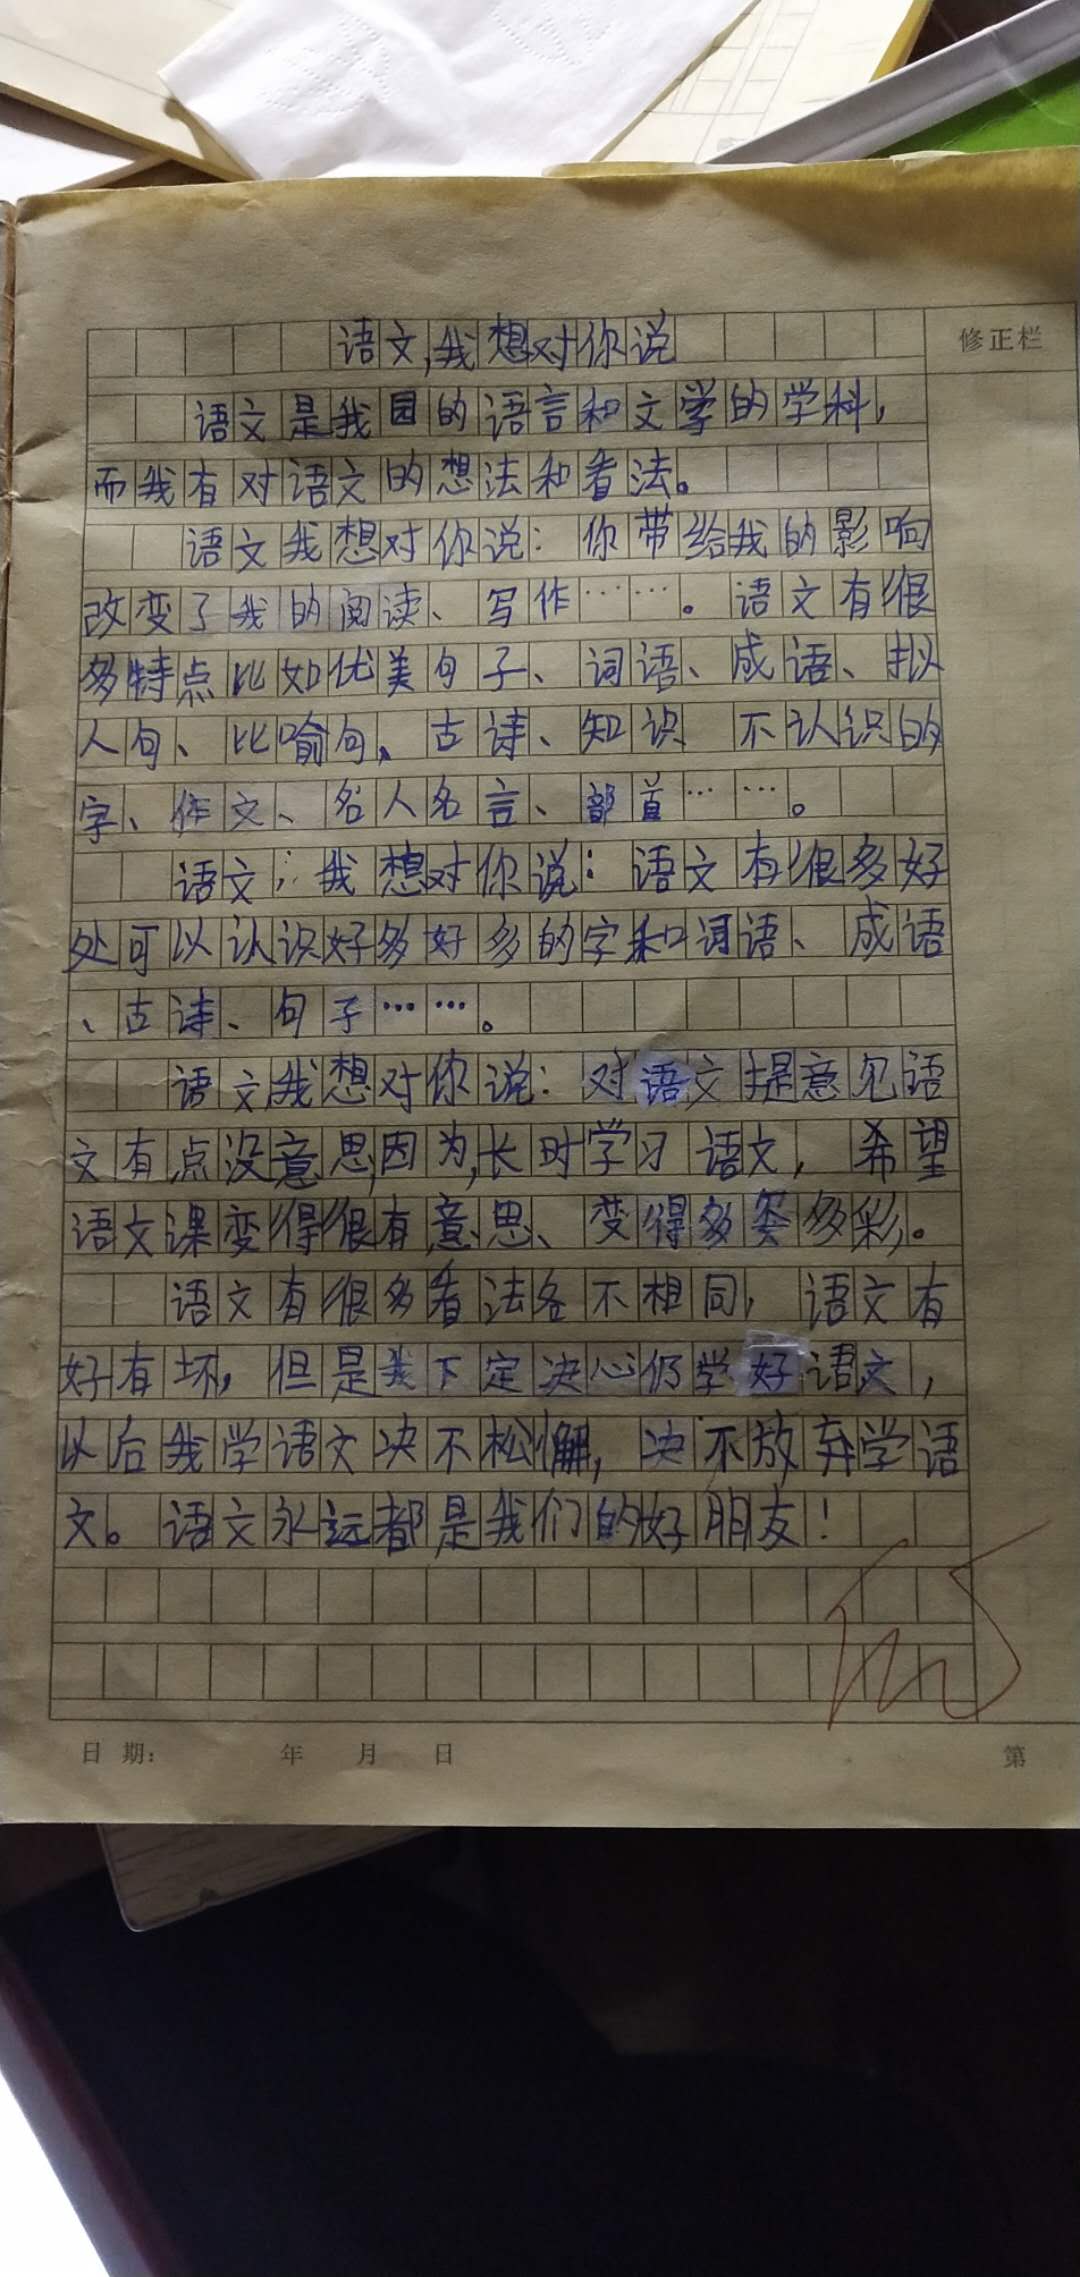 语文,我想对你说
修正栏
语文是我国的语言和文学的学科,
而我有对语文的想法和看法。
语文我想对你说:你带给我的影响
改变了我的阅读、写作……。语文有很
多特点比如优美句子、词语、成语、拟
人句、比喻句、古诗、知识、不认识的
字、作文、名人名言、部首……。
语文;我想对你说:语文有很多好
处可以认识好多好多的字和词语、成语
、古诗、句子……。
语文,我想对你说:对语文提意见语
文有点没意思,因为,长时学习语文,希望
语文课变得很有意思、变得多姿多彩。
语文有很多看法各不相同,语文有
好有坏,但是我下定决心仍学好语文,
以后我学语文决不松懈,决不放弃学语
文。语文永远都是我们的好朋友!
日期: 年 月 日
第